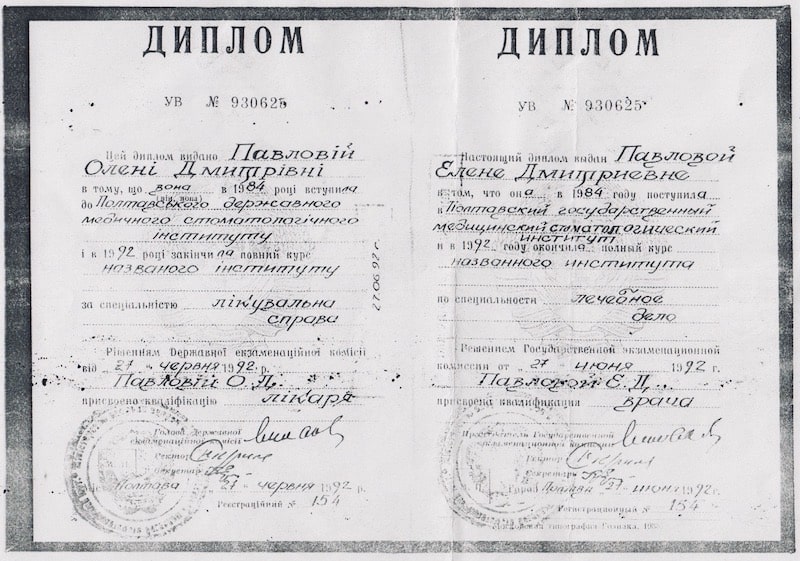 ДИПЛОМ
УВ № 930625
Цей диплом видано Павловій
Олені Дмитрівні
в тому, що вона в 1984 році вступила
(він, вона)
до Полтавського державного
медичного стоматологічного
інституту
і в 1992 році закінчила повний курс
названого інституту
за спеціальністю лікувальна
справа
Рішенням Державної екзаменаційної комісії
від "27" червня 1992 р.
Павловій О. Д.
присвоєно кваліфікацію лікаря
Голова Державної
екзаменаційної комісії
Ректор
Секретар
Полтава "27" червня 1992 р.
Реєстраційний № 154
27.06.92 г.
ДИПЛОМ
УВ № 930625
Настоящий диплом выдан Павловой
Елене Дмитриевне
в том, что она в 1984 году поступила
в Полтавский государственный
медицинский стоматологический
институт
и в 1992 году окончила полный курс
названного института
по специальности лечебное
дело
Решением Государственной экзаменационной
комиссии от "27" июня 1992 г.
Павловой Е. Д.
присвоена квалификация врача
Председатель Государственной
экзаменационной комиссии
Ректор
Секретарь
Город Полтава "27" июня 1992 г.
Регистрационный № 154
Московская типография Гознака, 19